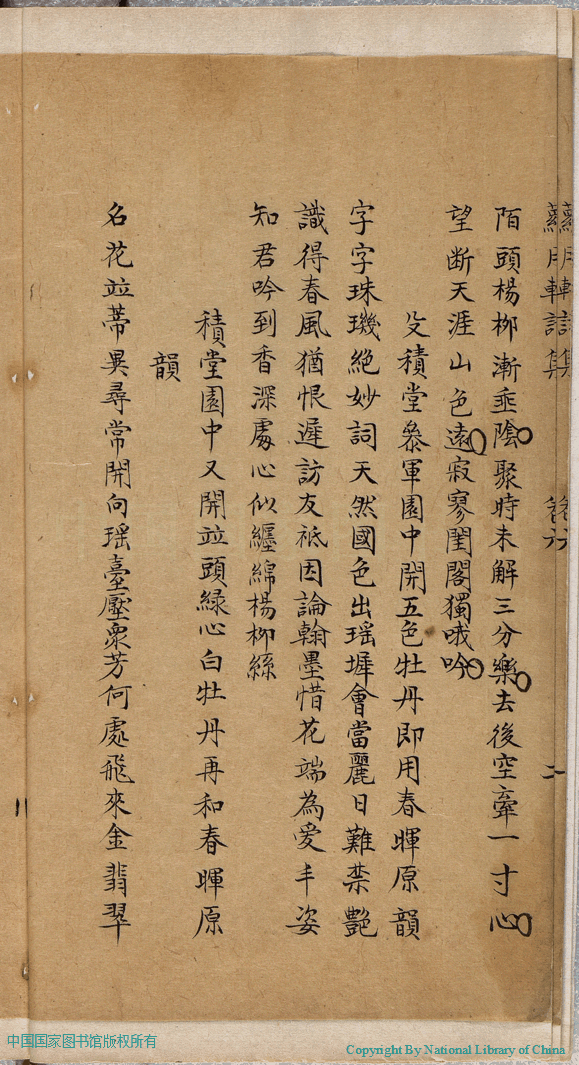 陌頭楊柳漸垂陰聚時未解三分樂去後空牽一寸心
望斷天涯山色遠寂寥閨閣獨哦吟
殳積堂叅軍園中開五色牡丹即用春暉原韻
字字珠璣絕妙詞天然國色出瑶墀會當麗日難禁艷
識得春風猶恨遲訪友祗因論翰墨惜花端為愛丰姿
知君吟到香深處心似纏綿楊柳絲
積堂園中又開並頭緑心白牡丹再和春暉原
韻
名花並蒂異尋常開向瑶臺壓衆芳何處飛來金翡翠
中国国家图书馆版权所有
Copyright By National Library of China